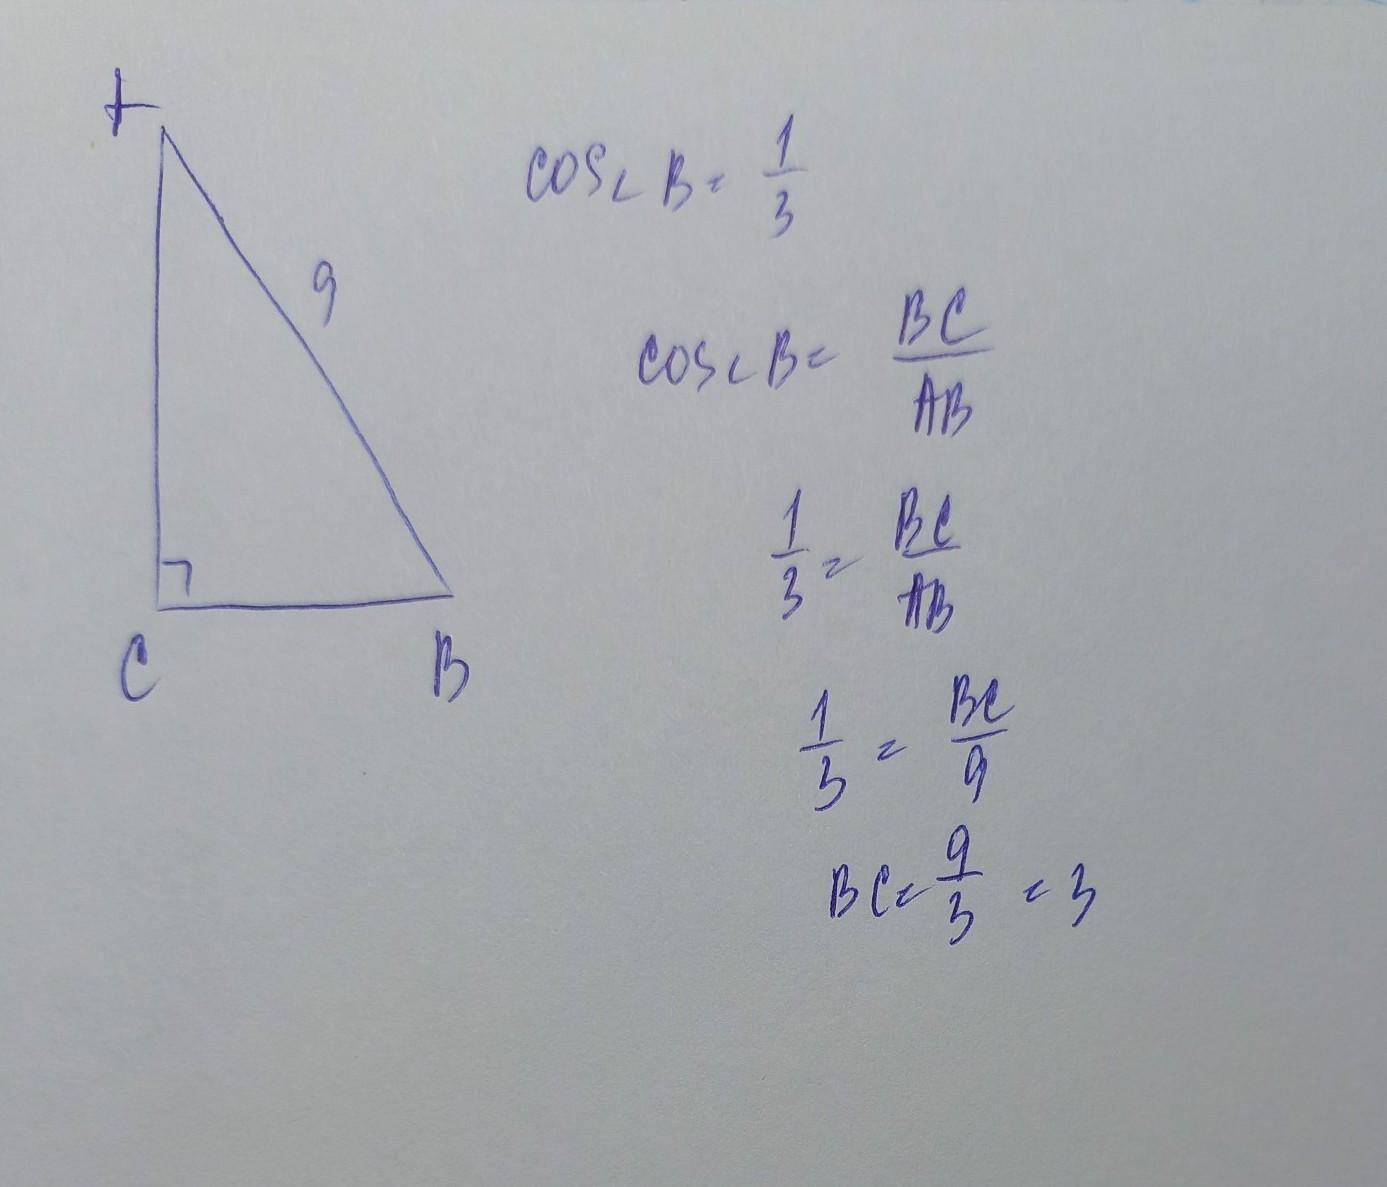 A
9
C
B
cos∠B = 1/3
cos∠B = BC/AB
1/3 = BC/AB
1/3 = BC/9
BC = 9/3 = 3